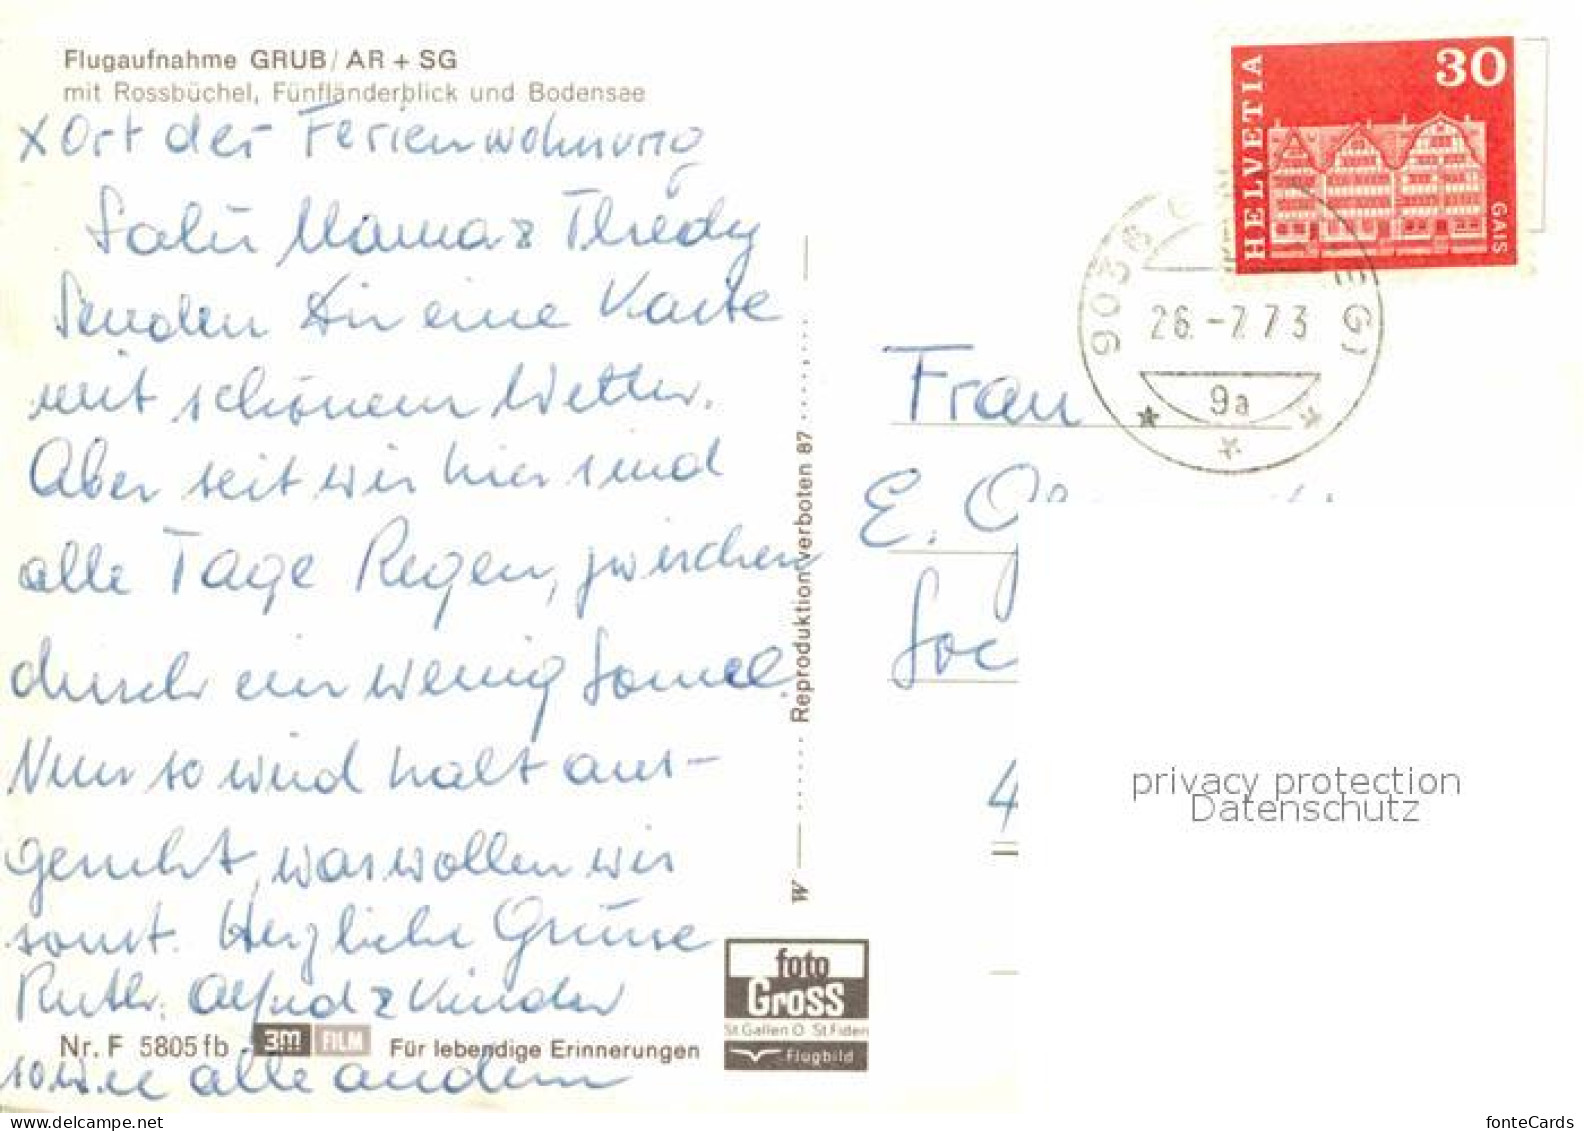 Flugaufnahme GRUB / AR + SG
mit Rossbüchel, Fünfländerblick und Bodensee
x Ort der Ferienwohnung
Salü Mama & Thredy
Senden Dir eine Karte
mit schönem Wetter.
Aber seit wir hier sind
alle Tage Regen, zwischen
durch ein wenig Sonne.
Nun so wird halt aus-
geruht, was wollen wir
sonst. Herzliche Grüsse
Ruth, Alfred & Kinder
sowie alle andern
Nr. F 5805 fb 3M FILM Für lebendige Erinnerungen
W Reproduktion verboten 87
foto
Gross
St. Gallen O St. Fiden
Flugbild
HELVETIA
30
GAIS
9036 G EG)
26.-7.73
9a
Frau
E. G
Soc
4
privacy protection
Datenschutz
fonteCards